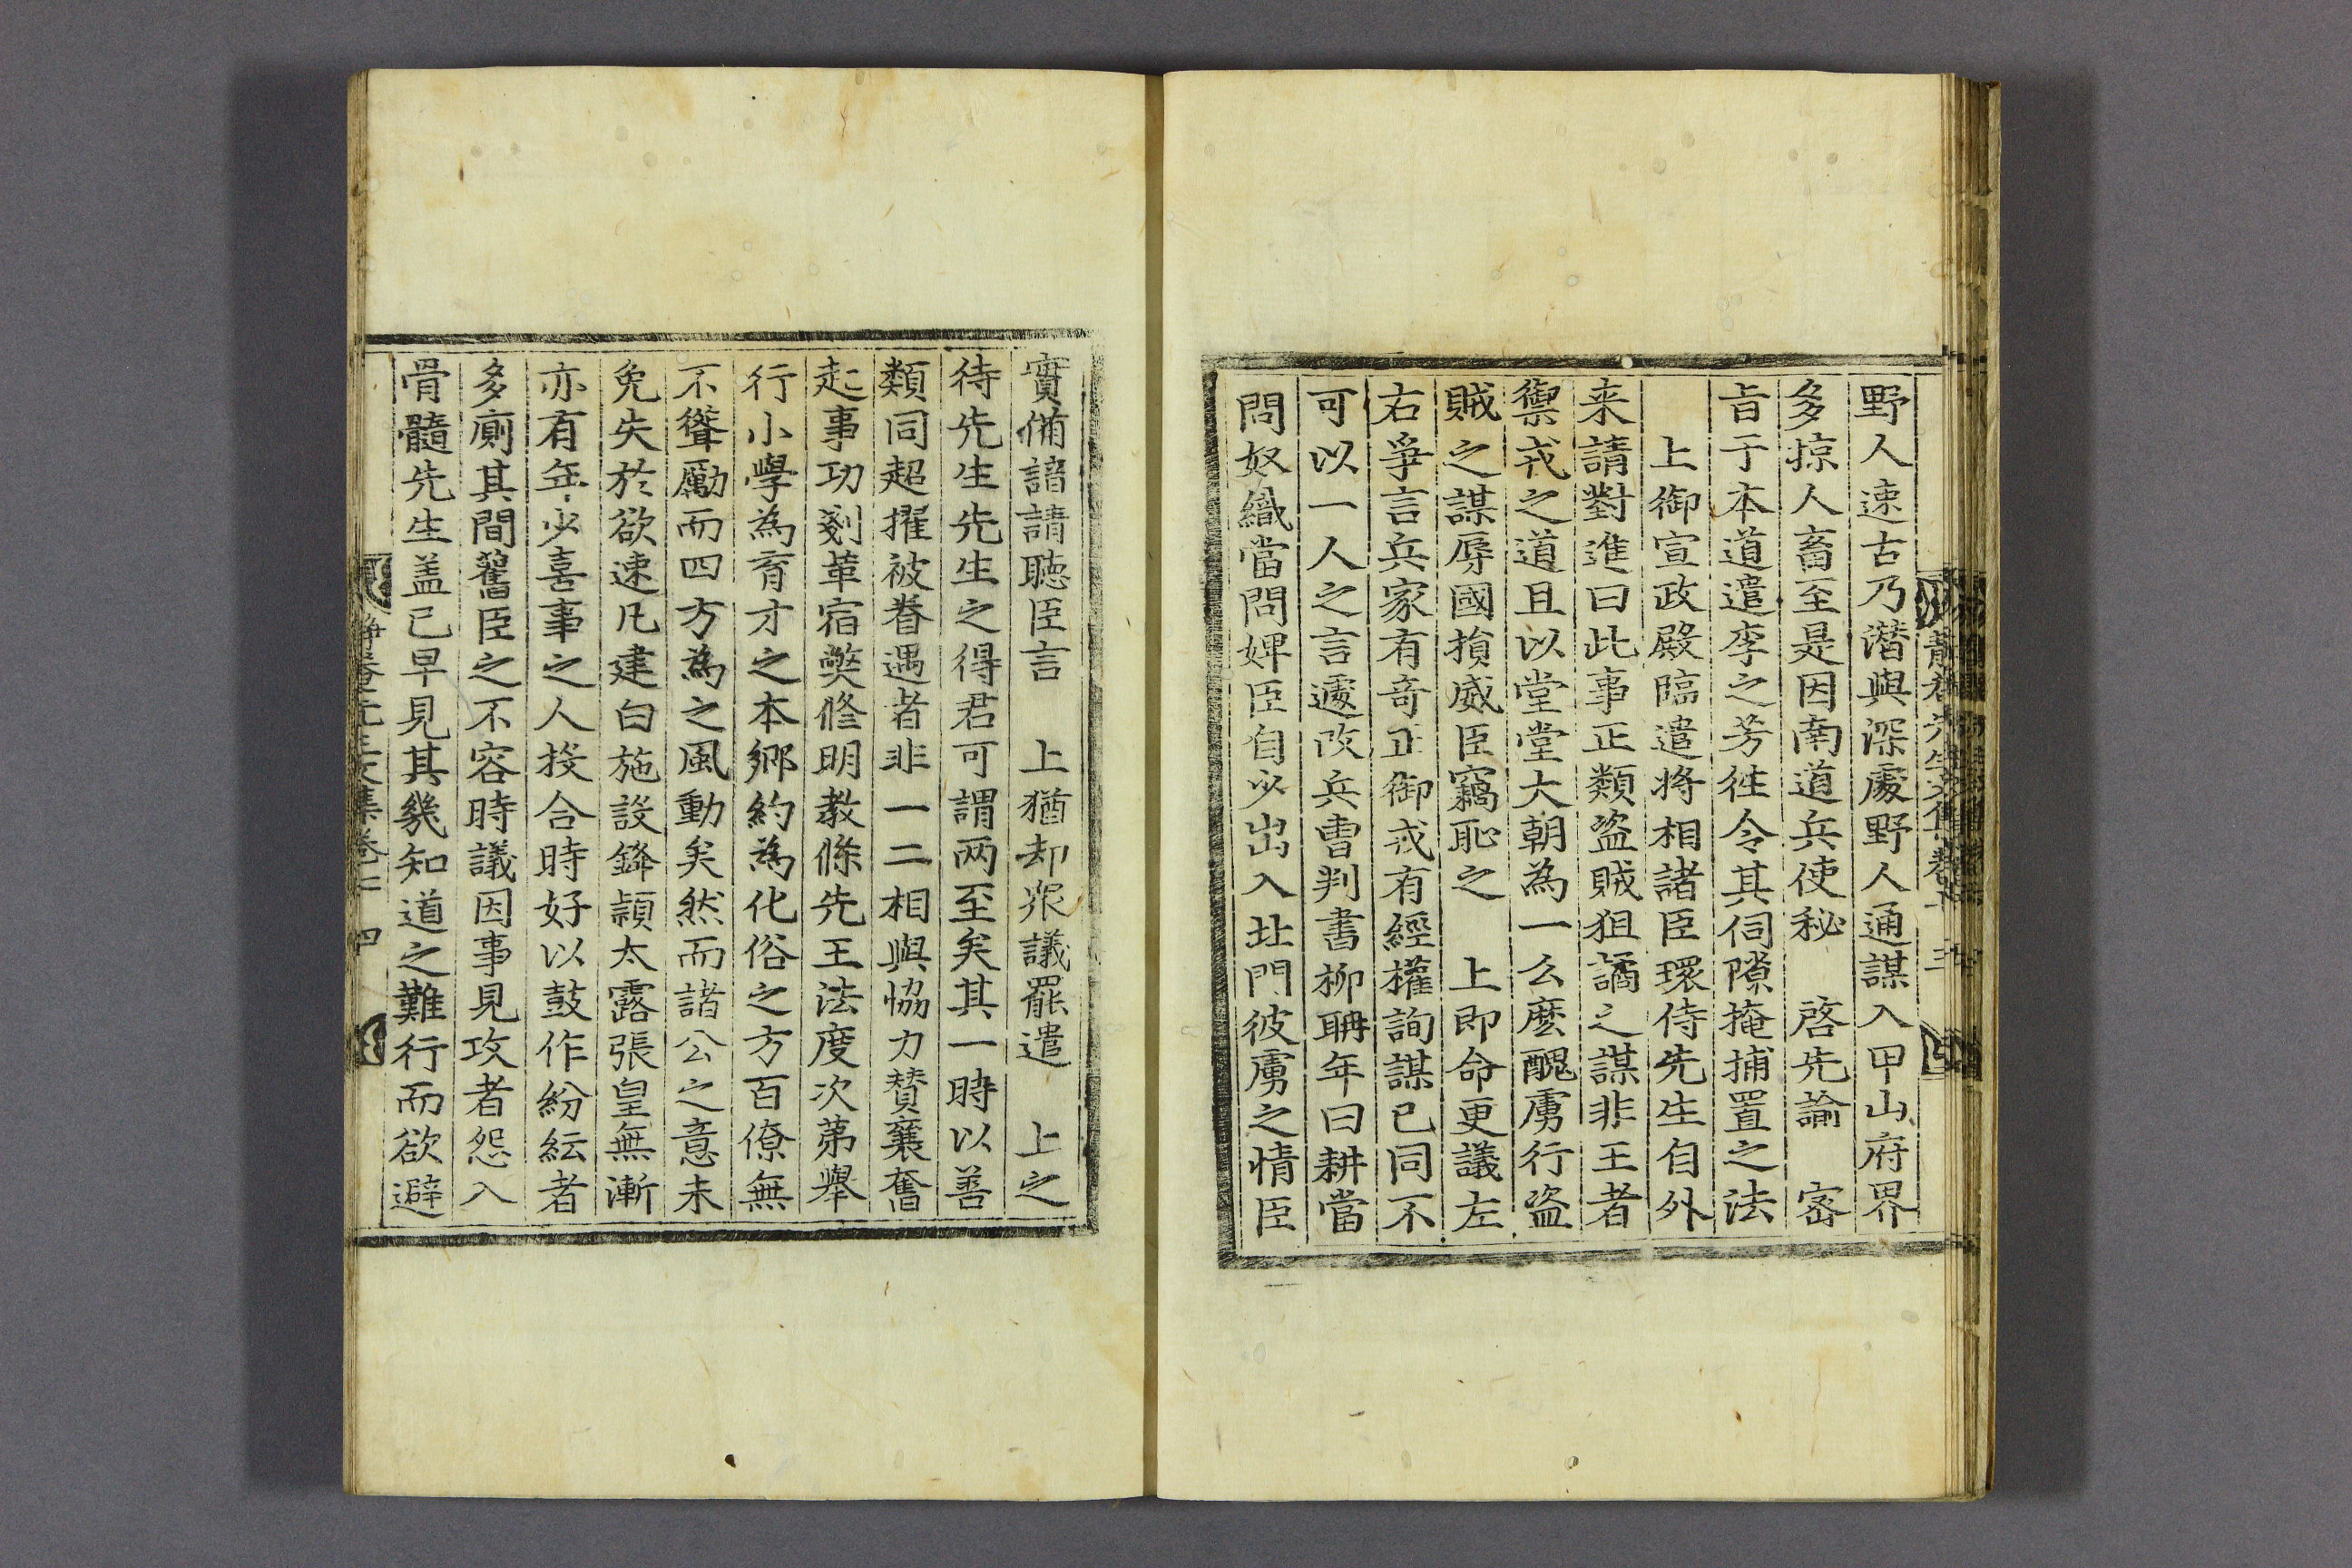 野人速古乃潛與深處野人通謀入甲山府界
多掠人畜至是因南道兵使秘 啓先諭 密
旨于本道遣李之芳徃令其伺隙掩捕置之法
上御宣政殿臨遣將相諸臣環侍先生自外
来請對進曰此事正類盜賊狙譎之謀非王者
禦戎之道且以堂堂大朝為一么麽醜虜行盜
賊之謀辱國損威臣竊恥之 上即命更議左
右爭言兵家有奇正御戎有經權詢謀已同不
可以一人之言遽改兵曺判書柳聃年曰耕當
問奴織當問婢臣自少出入北門彼虜之情臣
實備諳請聽臣言 上猶却衆議罷遣 上之
待先生先生之得君可謂两至矣其一時以善
類同超擢被眷遇者非一二相與恊力賛襄奮
起事功剗革宿弊修明教條先王法度次苐舉
行小學為育才之本鄉約為化俗之方百僚無
不聳勵而四方為之風動矣然而諸公之意未
免失於欲速凡建白施設鋒頴太露張皇無漸
亦有年少喜事之人投合時好以鼓作紛紜者
多廁其間舊臣之不容時議因事見攻者怨入
骨髓先生盖已早見其幾知道之難行而欲避
靜菴先生文集卷七 四